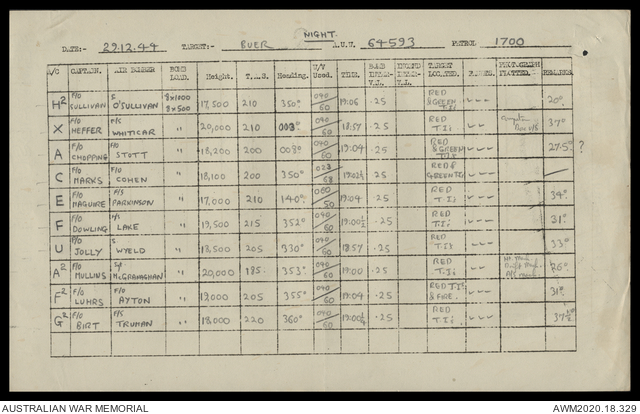 NIGHT.
DATE:- 29.12.44 TARGET:- BUER A.U.W. 64593 PETROL 1700
A/C CAPTAIN. AIR BOMBER BOMB LOAD. Height. T.A.S. Heading. W/V Used. TIME. TARGET LOCATED. PHOTOGRAPH PLOTTED. REMARKS
H² F/O SULLIVAN S O'SULLIVAN 8x1000 8x500 17,500 210 350° 040/60 19.06 .25 RED & GREEN T.I's 20°
X F/O HEFFER F/S WHITICAR " 20,000 210 003° 040/60 18.57 .25 RED T.I's 37°
A F/O CHOPPING F/S STOTT " 18,200 200 003° 040/60 19.04 .25 RED & GREEN T.I's 27.5° ?
C F/O MARKS F/O COHEN " 18,100 200 350° .25 RED & GREEN T.I
E F/O MAGUIRE F/S PARKINSON " 17,000 210 140° 19.04 .25 RED T.I's 34°
F F/O DOWLING LAKE " 19,500 215 352° 040/60 19.00½ .25 RED T.I's 31°
U F/O JOLLY S WYELD " 18,500 205 330° 040/60 18.57 .25 RED T.I's 33°
A² F/O MULLINS McGRANAGHAN " 20,000 185. 353° 040/60 19.00 .25 RED T.I's 36°
F² F/O LUHRS F/O AYTON " 19,000 205 355° 040/60 19.04 .25 RED T.I's & FIRE. 31°
G² F/O BIRT F/S TRUMAN " 18,000 220 360° 040/60 .25 RED T.I's 37½°
AUSTRALIAN WAR MEMORIAL AWM2020.18.329